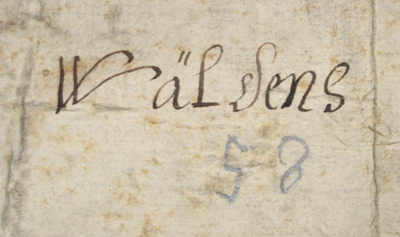 Wäldens
58